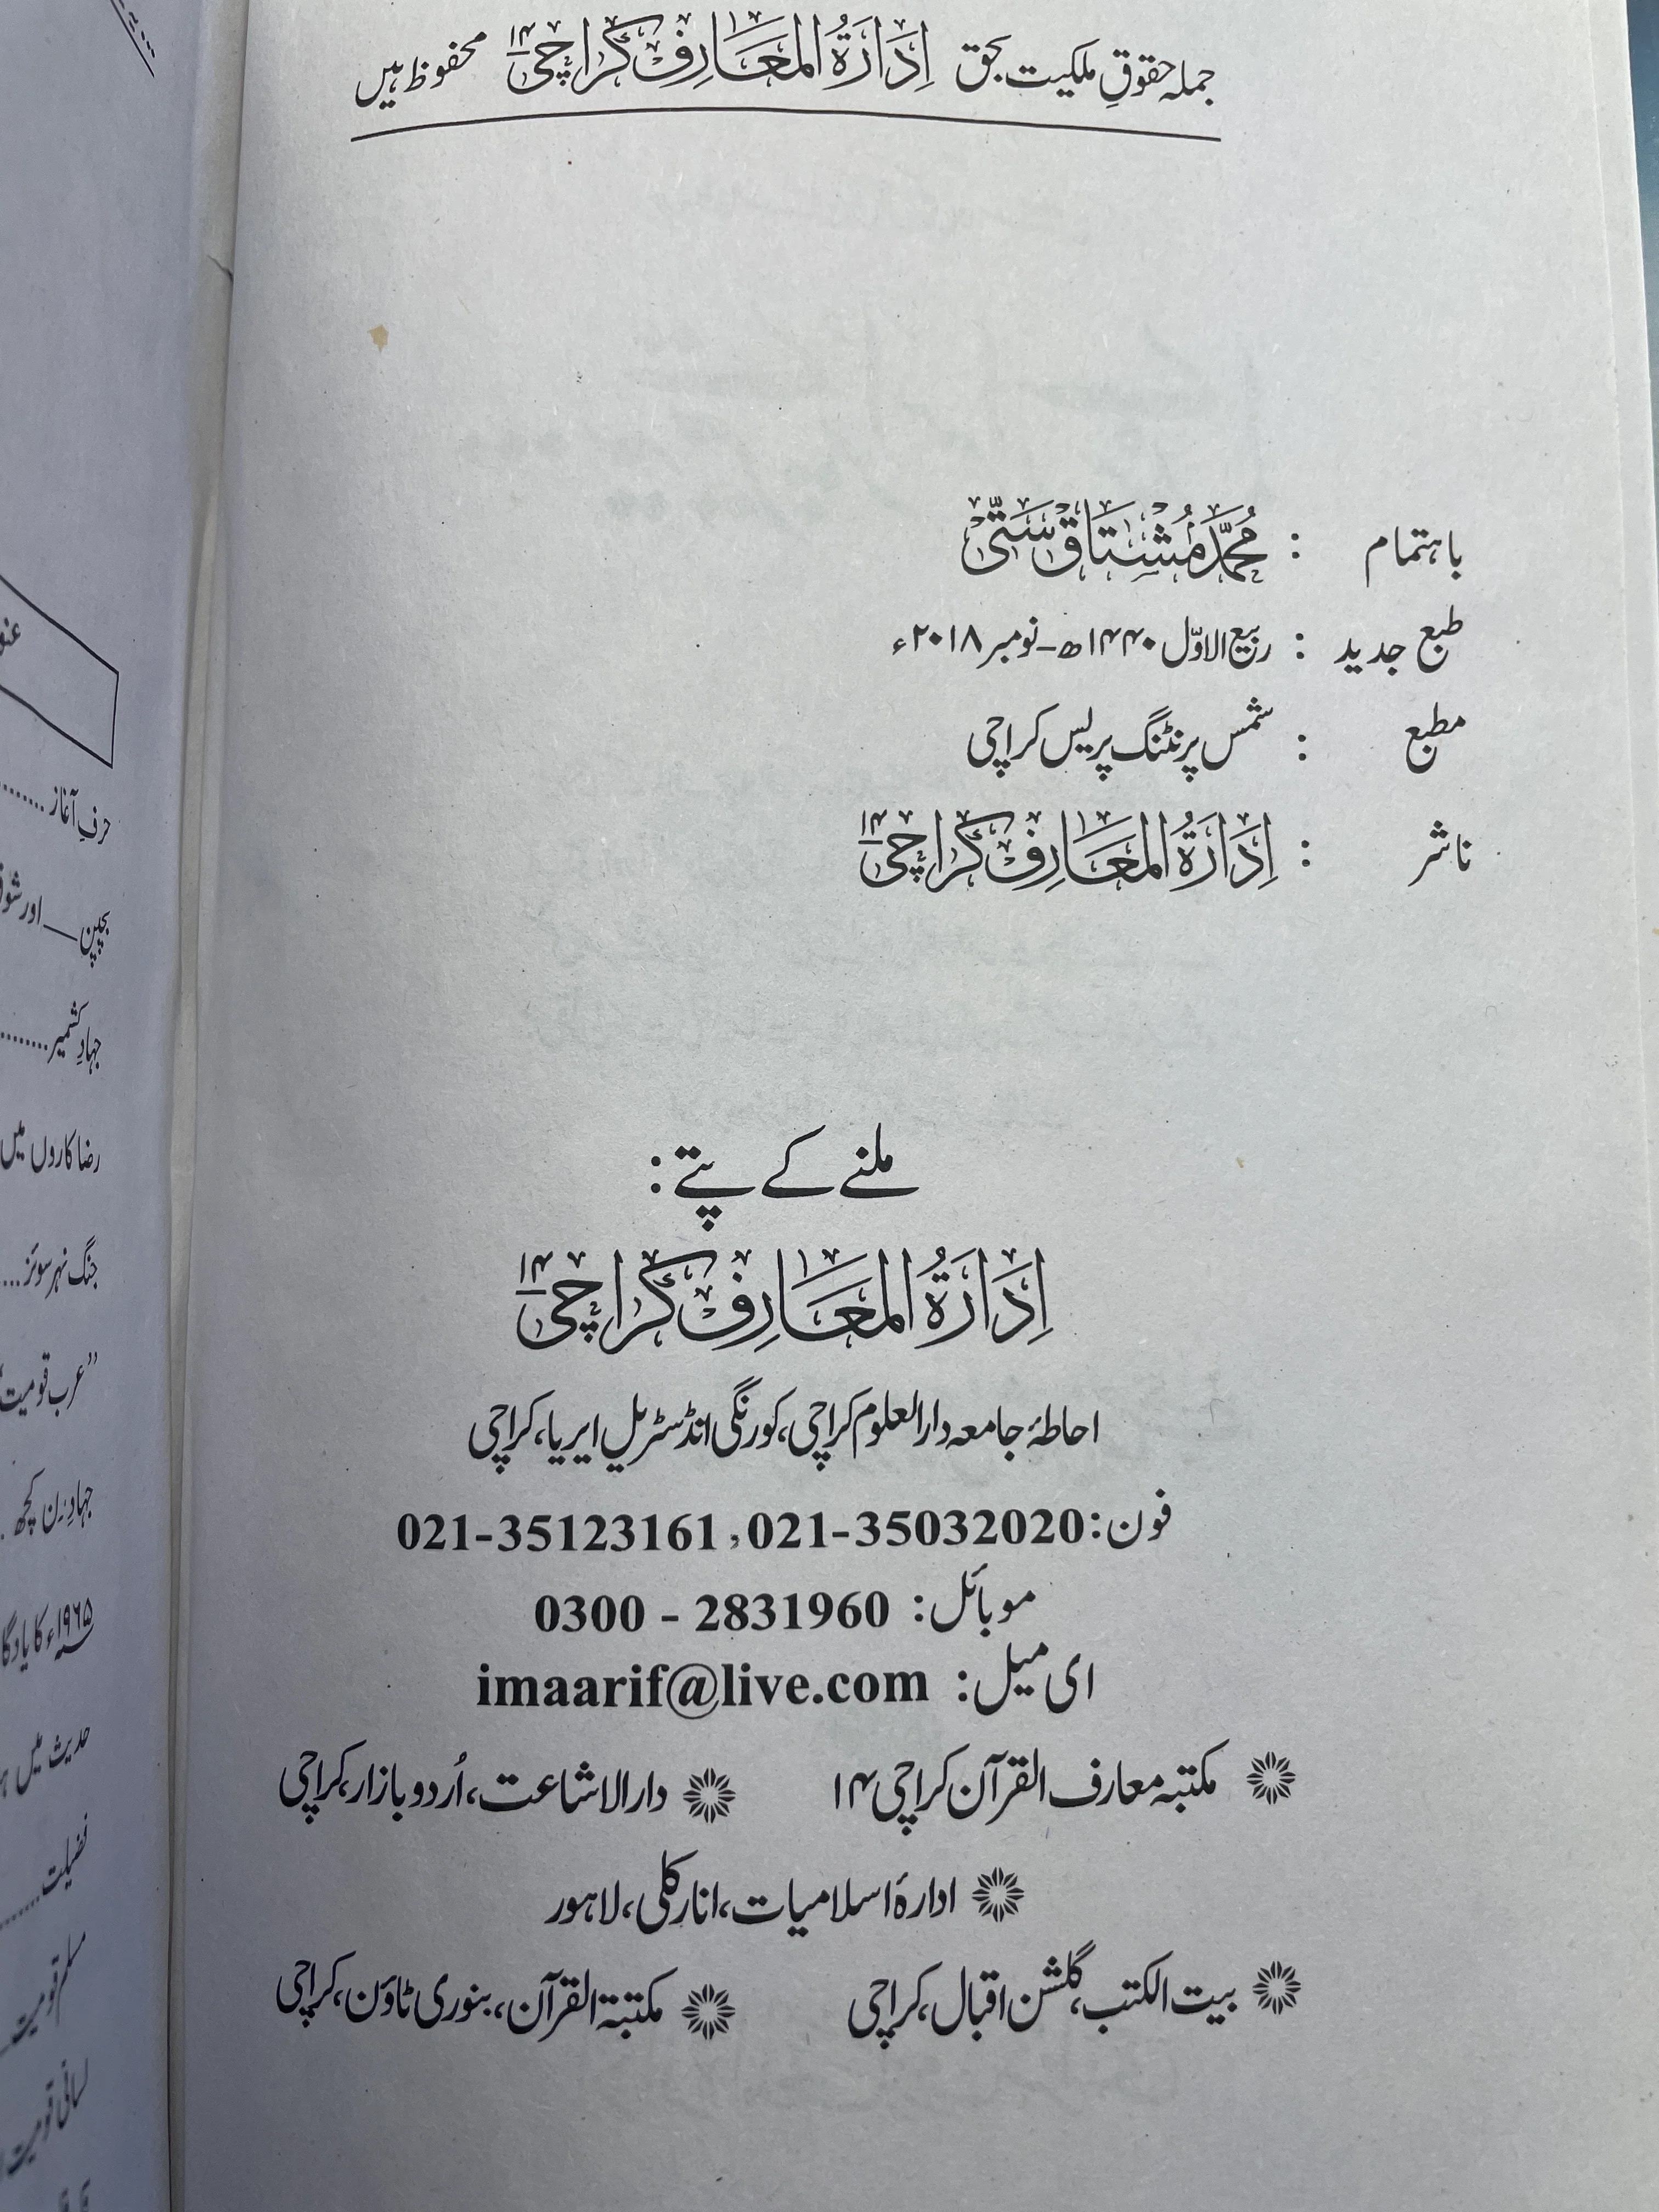 جملہ حقوقِ ملکیت بحق اِدَارَۃُ المَعَارِف کراچی ۱۴ محفوظ ہیں
باہتمام : مُحَمَّد مُشتَاق سَتّی
طبع جدید : ربیع الاوّل ۱۴۴۰ھ - نومبر ۲۰۱۸ء
مطبع : شمس پرنٹنگ پریس کراچی
ناشر : اِدَارَۃُ المَعَارِف کراچی ۱۴
ملنے کے پتے:
اِدَارَۃُ المَعَارِف کراچی ۱۴
احاطۂ جامعہ دارالعلوم کراچی، کورنگی انڈسٹریل ایریا، کراچی
فون: 021-35032020، 021-35123161
موبائل: 0300 - 2831960
ای میل: imaarif@live.com
مکتبہ معارف القرآن کراچی ۱۴
دارالاشاعت، اُردو بازار، کراچی
ادارۂ اسلامیات، انارکلی، لاہور
بیت الکتب، گلشن اقبال، کراچی
مکتبۃ القرآن، بنوری ٹاؤن، کراچی
حرفِ آغاز
بچپن — اور شوق
جہادِ کشمیر
رضاکاروں میں
جنگ نہر سوئز
”عرب قومیت“
جہادِ رَن کچھ
۱۹۶۵ء کا یادگا
حدیث میں
فضیلت
مسلم قومیت
لسانی قومیت